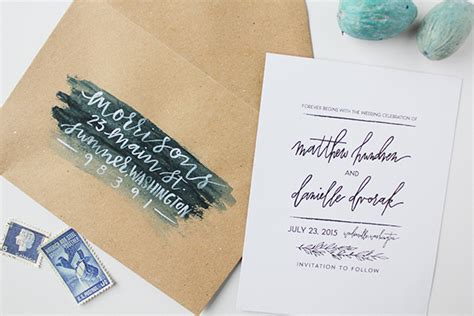 morrisons
23 main St
Sumner WASHINGTON
98391
FOREVER BEGINS WITH THE WEDDING CELEBRATION OF
matthew hundven
AND
danielle dvorak
JULY 23, 2015 woodinville, washington
INVITATION TO FOLLOW